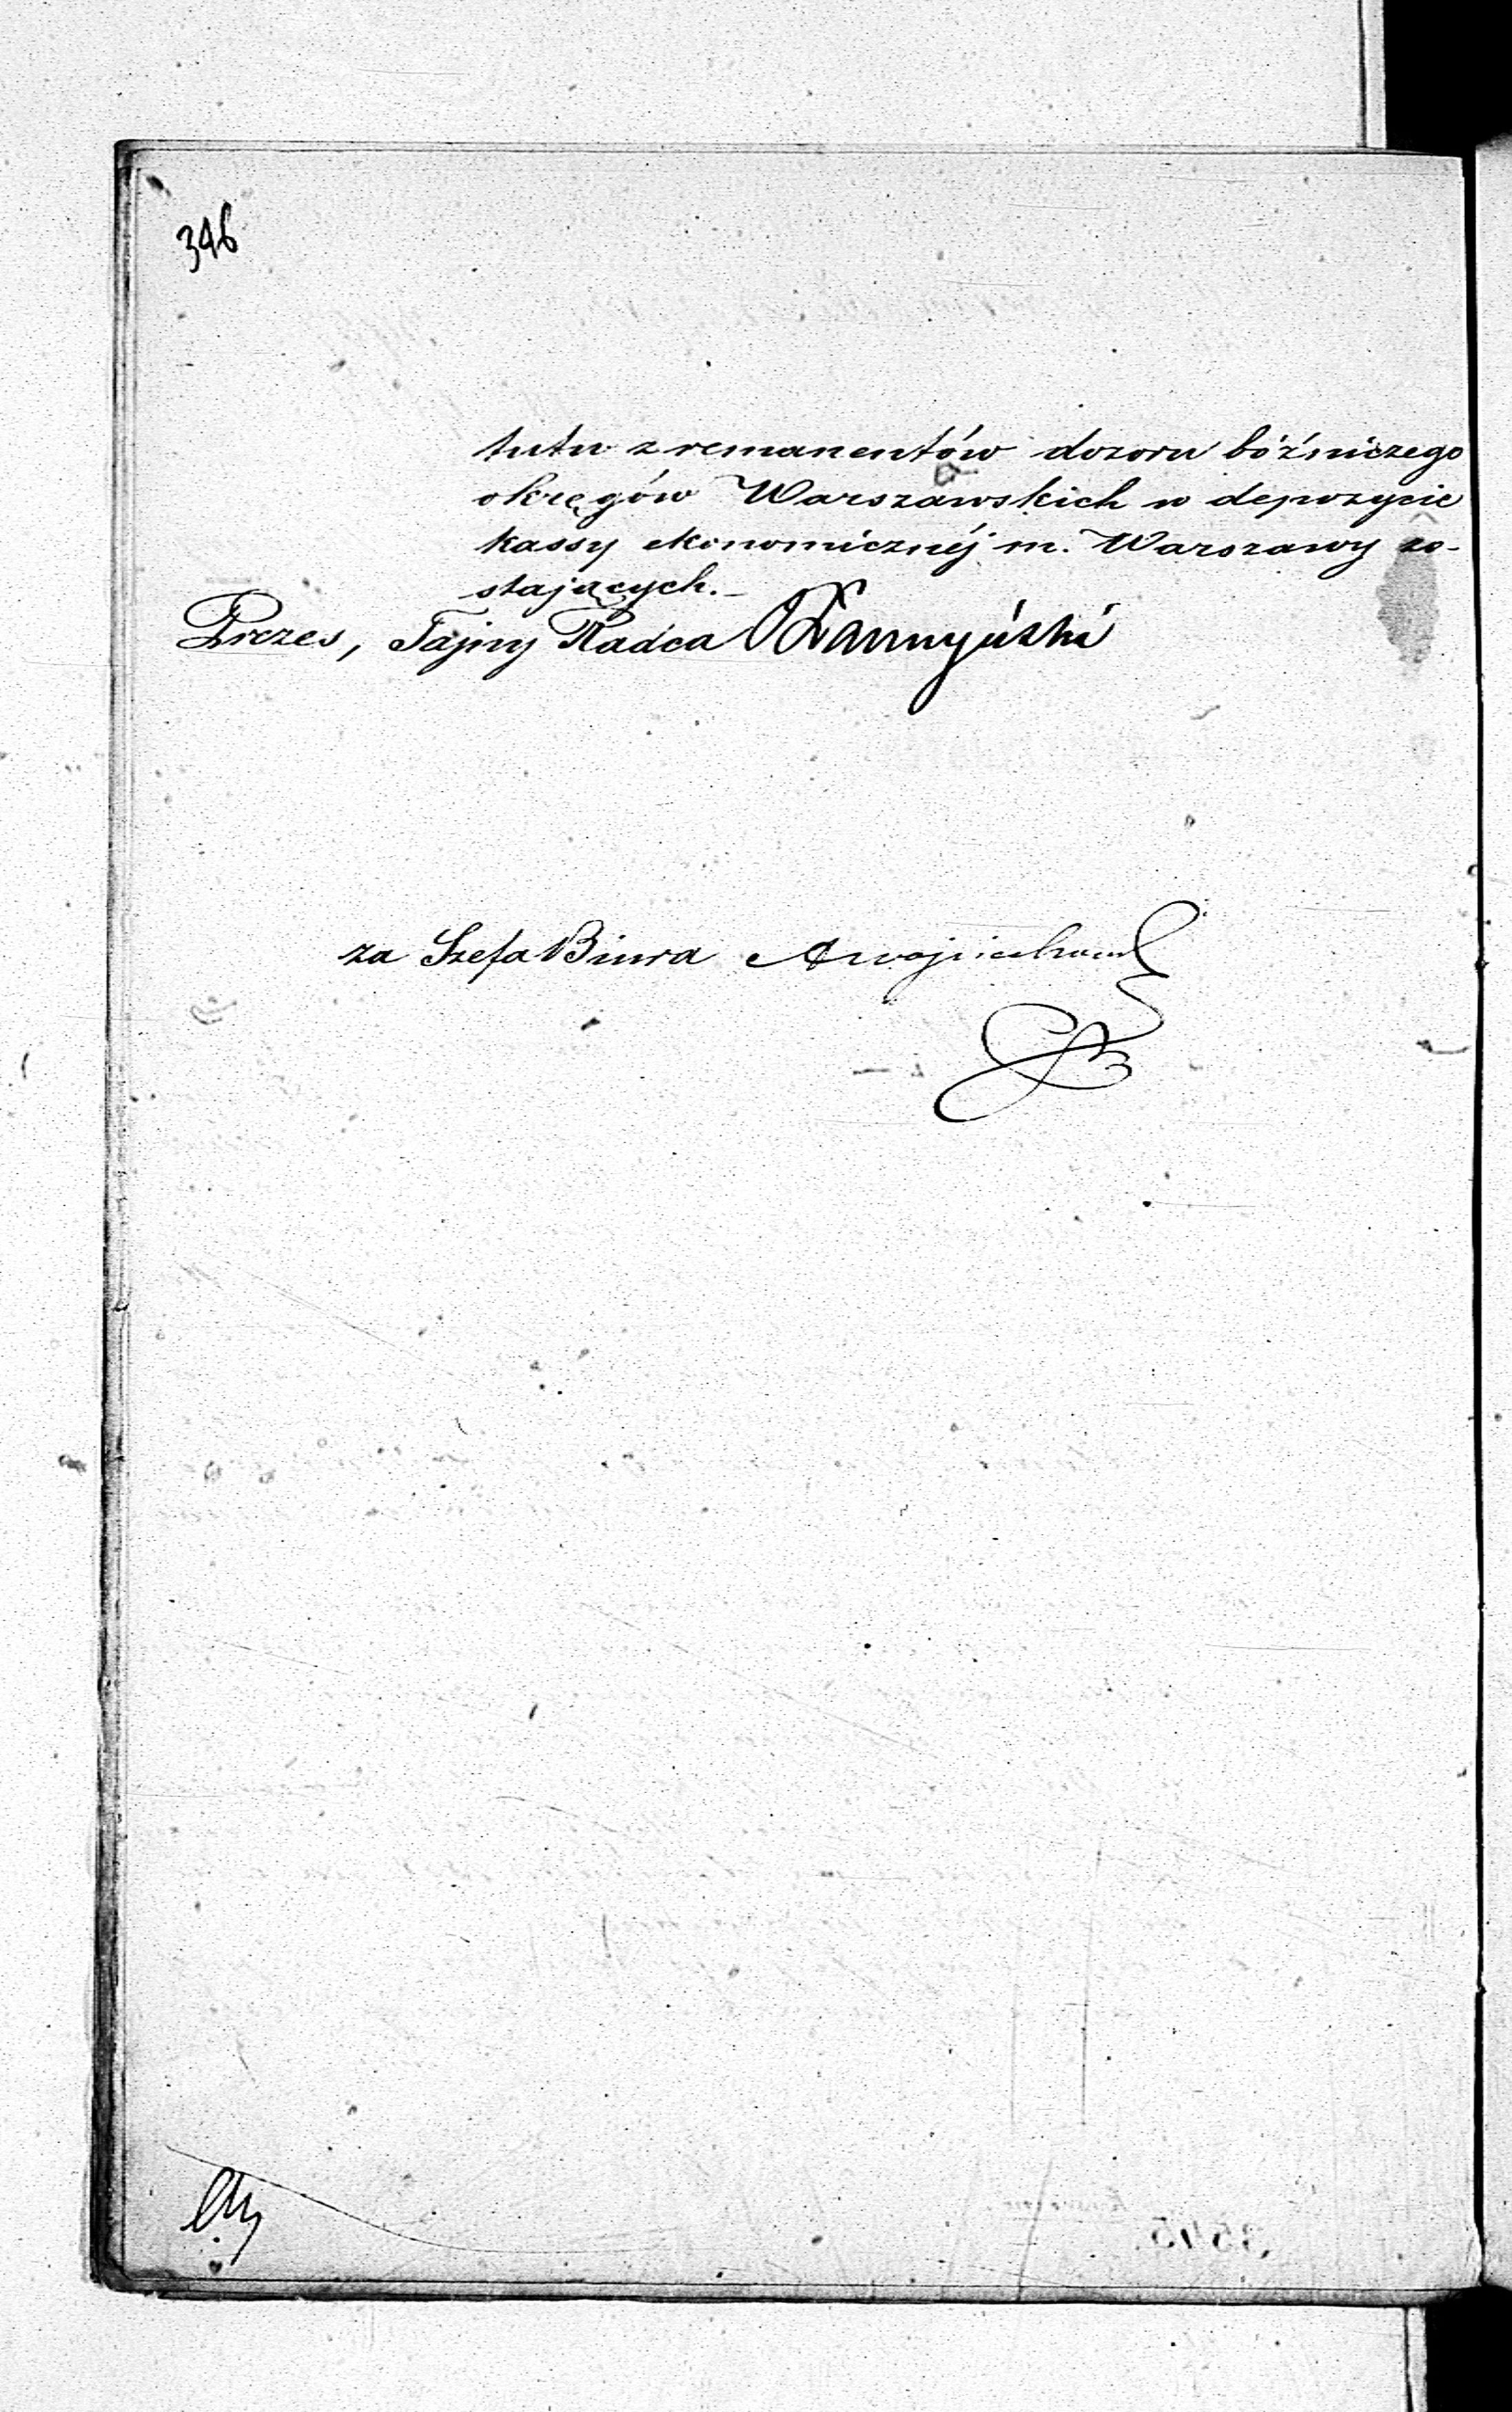 346
tutu z remanentów dozoru bóźniczego
okręgów Warszawskich w depozycie
kassy ekonomicznéj m. Warszawy zo-
stających.—
Prezes, Tajny Radca
za Szefa Biura